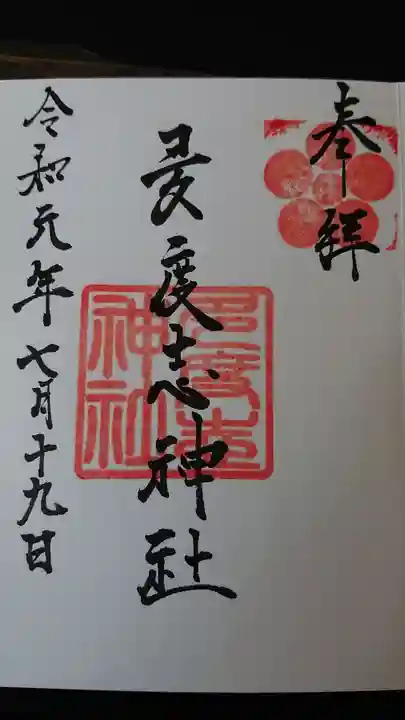 奉拝
夛度志神社
多度志
神社
令和元年七月十九日